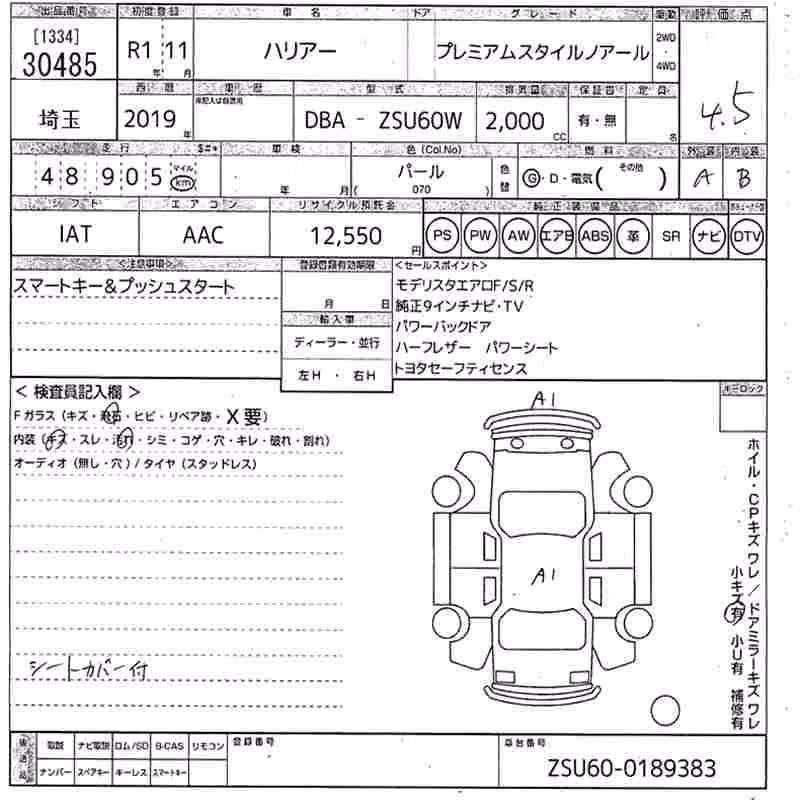 出品番号 初度登録 車名 ドア グレード 駆動 評価点
[1334]
30485 R1 年 11 月 ハリアー プレミアムスタイルノアール 2WD・4WD 4.5
西暦 車歴 型式 排気量 保証書 定員
埼玉 2019 年 未記入は自家用 DBA - ZSU60W 2,000 CC 有・無 名
走行 $#* 車検 色 (Col.No) 燃料 外装 内装
48905 マイル km 年 月 パール (070) 色替 G・D・電気( その他 ) A B
シフト エアコン リサイクル預託金 純正装備品
IAT AAC 12,550 円 PS PW AW エアB ABS 革 SR ナビ DTV
<注意事項> 登録書類有効期限 <セールスポイント>
スマートキー&プッシュスタート 月 日 モデリスタエアロF/S/R
純正9インチナビ・TV
輸入車 パワーバックドア
ディーラー・並行 ハーフレザー パワーシート
左H ・ 右H トヨタセーフティセンス
< 検査員記入欄 >
Fガラス (キズ・飛石・ヒビ・リペア跡・X要)
内装 (キズ・スレ・汚れ・シミ・コゲ・穴・キレ・破れ・割れ)
オーディオ (無し・穴) / タイヤ (スタッドレス)
A1
A1
シートカバー付
キーロック
ホイル・CPキズ ワレ / ドアミラーキズ ワレ
小キズ有 小U有 補修有
後送品 取説 ナビ取説 ロム/SD B-CAS リモコン 登録番号 車台番号
ナンバー スペアキー キーレス スマートキー ZSU60-0189383